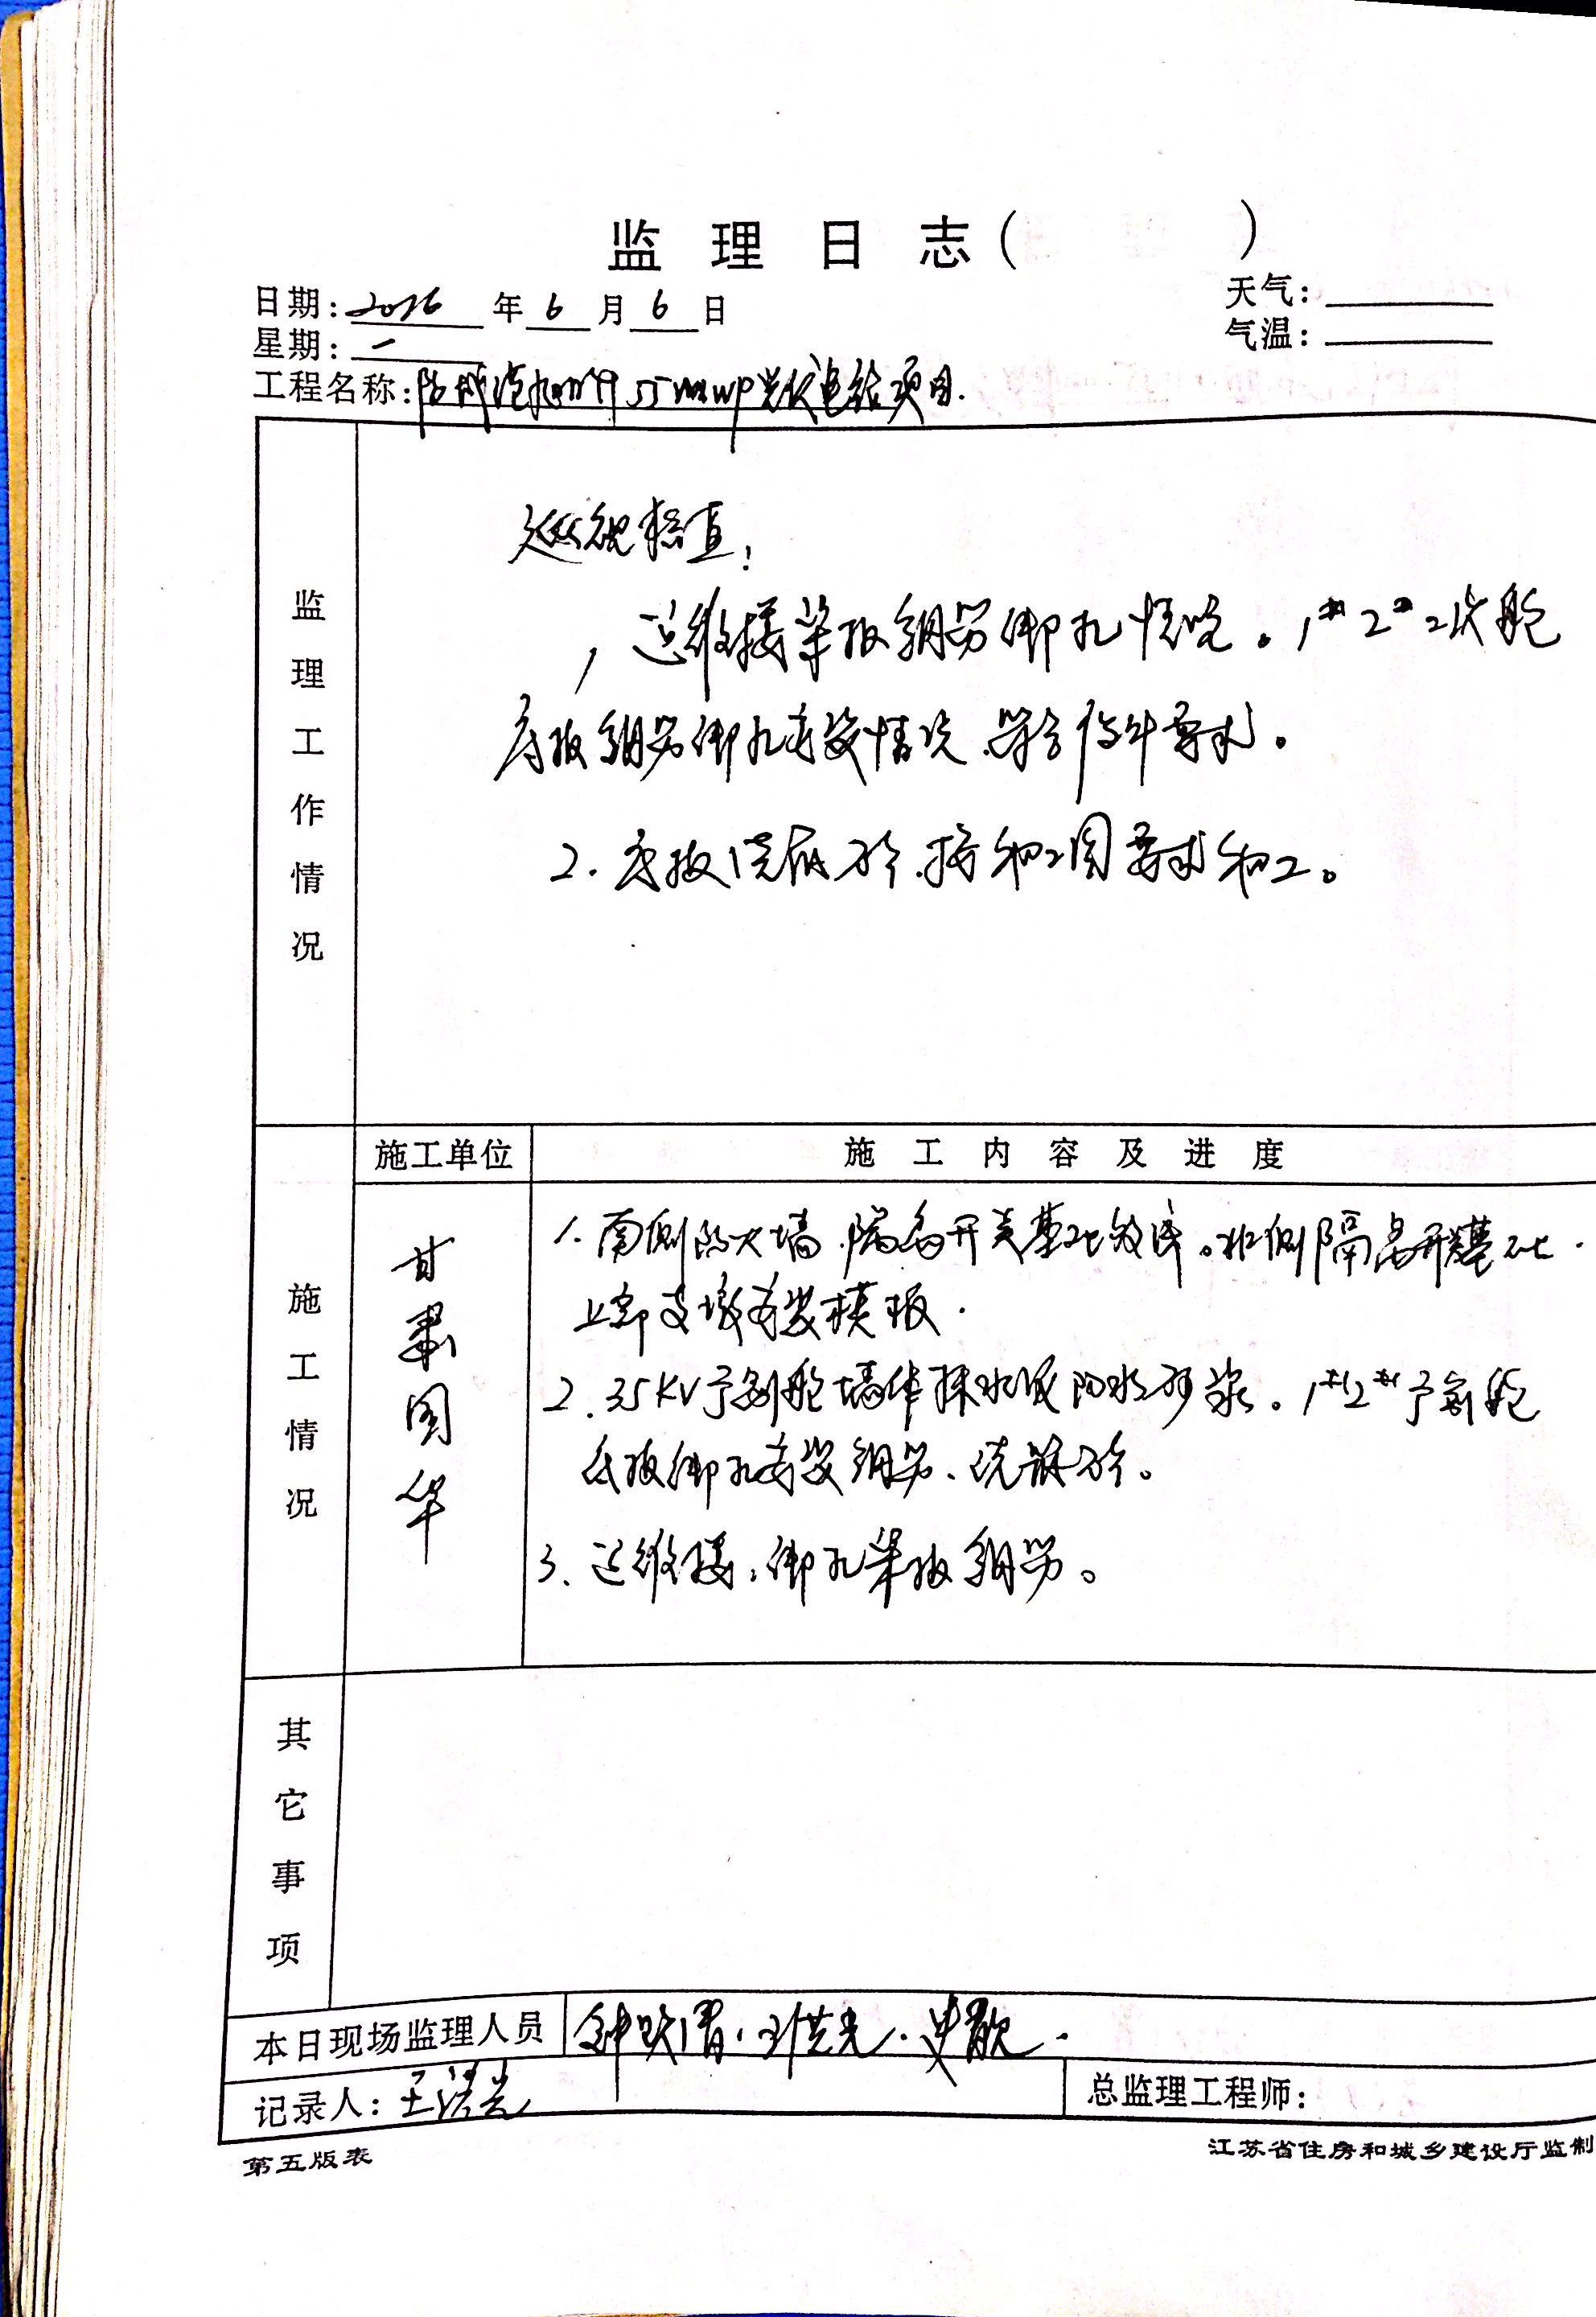 监理日志（ ）
日期: 2016 年 6 月 6 日
天气:
星期: 一
气温:
工程名称: 防城港 55MWP光伏电站项目.
监理工作情况
巡视检查:
1 运维楼梁板钢筋绑扎情况。1# 2# 二次舱
底板钢筋绑扎安装情况.符合设计要求。
2. 底板浇砼.按施工图要求施工。
施工单位
施工内容及进度
施工情况
甘肃国华
1. 南侧防火墙.隔离开关基础.北侧隔离开关基础.
上部支墩安装模板.
2. 35KV予制舱墙体抹水泥防水砂浆。1# 2# 予制舱
底板绑扎安装钢筋、浇砼。
3、运维楼:绑扎梁板钢筋。
其它事项
本日现场监理人员 钟 . 王洪光 . 史歌.
记录人: 王洪光
总监理工程师:
第五版表
江苏省住房和城乡建设厅监制